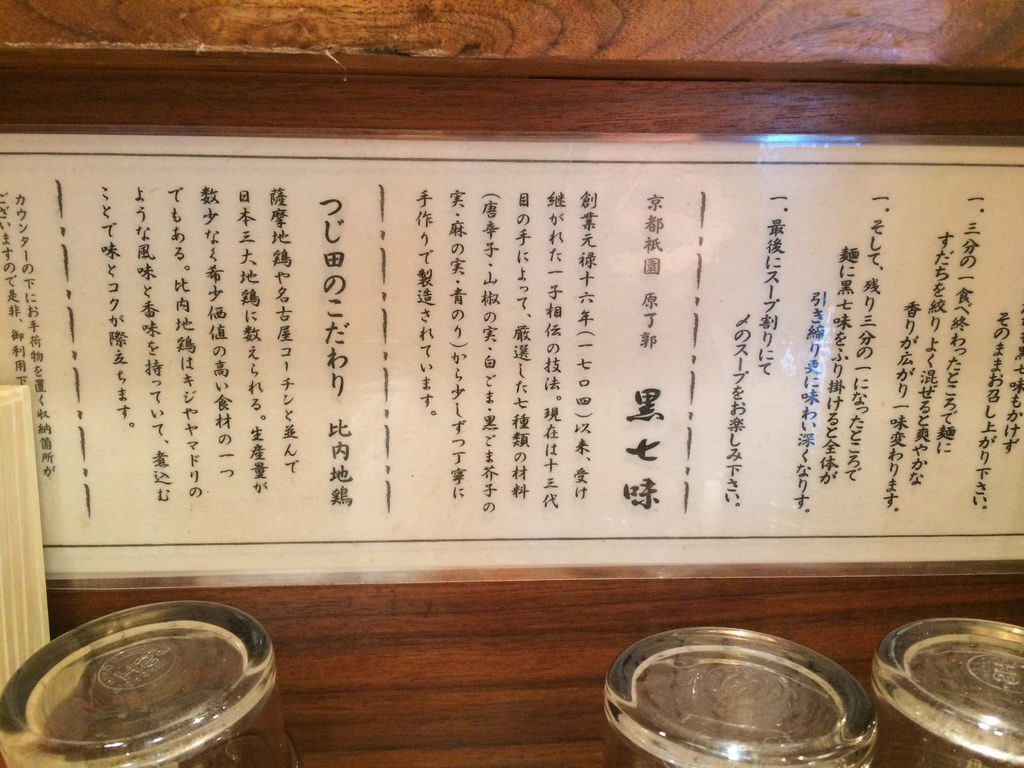 黒七味もかけず
そのままお召し上がり下さい。
一、三分の一食べ終わったところで麺に
すだちを絞りよく混ぜると爽やかな
香りが広がり一味変わります。
一、そして、残り三分の一になったところで
麺に黒七味をふり掛けると全体が
引き締り更に味わい深くなりす。
一、最後にスープ割りにて
〆のスープをお楽しみ下さい。
京都祇園 原了郭 黒七味
創業元禄十六年(一七〇四)以来、受け
継がれた一子相伝の技法。現在は十三代
目の手によって、厳選した七種類の材料
(唐辛子・山椒の実・白ごま・黒ごま芥子の
実・麻の実・青のり)から少しずつ丁寧に
手作りで製造されています。
つじ田のこだわり 比内地鶏
薩摩地鶏や名古屋コーチンと並んで
日本三大地鶏に数えられる。生産量が
数少なく希少価値の高い食材の一つ
でもある。比内地鶏はキジやヤマドリの
ような風味と香味を持っていて、煮込む
ことで味とコクが際立ちます。
カウンターの下にお手荷物を置く収納箇所が
ございますので是非、御利用下